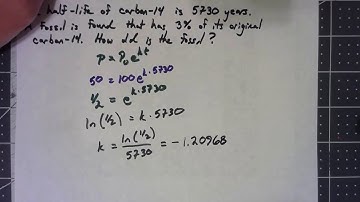 half-life of carbon-14 is 5730 years.
fossil is found that has 3% of its original
carbon-14. How old is the fossil?
P = P₀e^(kt)
50 = 100e^(k·5730)
1/2 = e^(k·5730)
ln(1/2) = k·5730
k = ln(1/2)/5730 = -1.20968